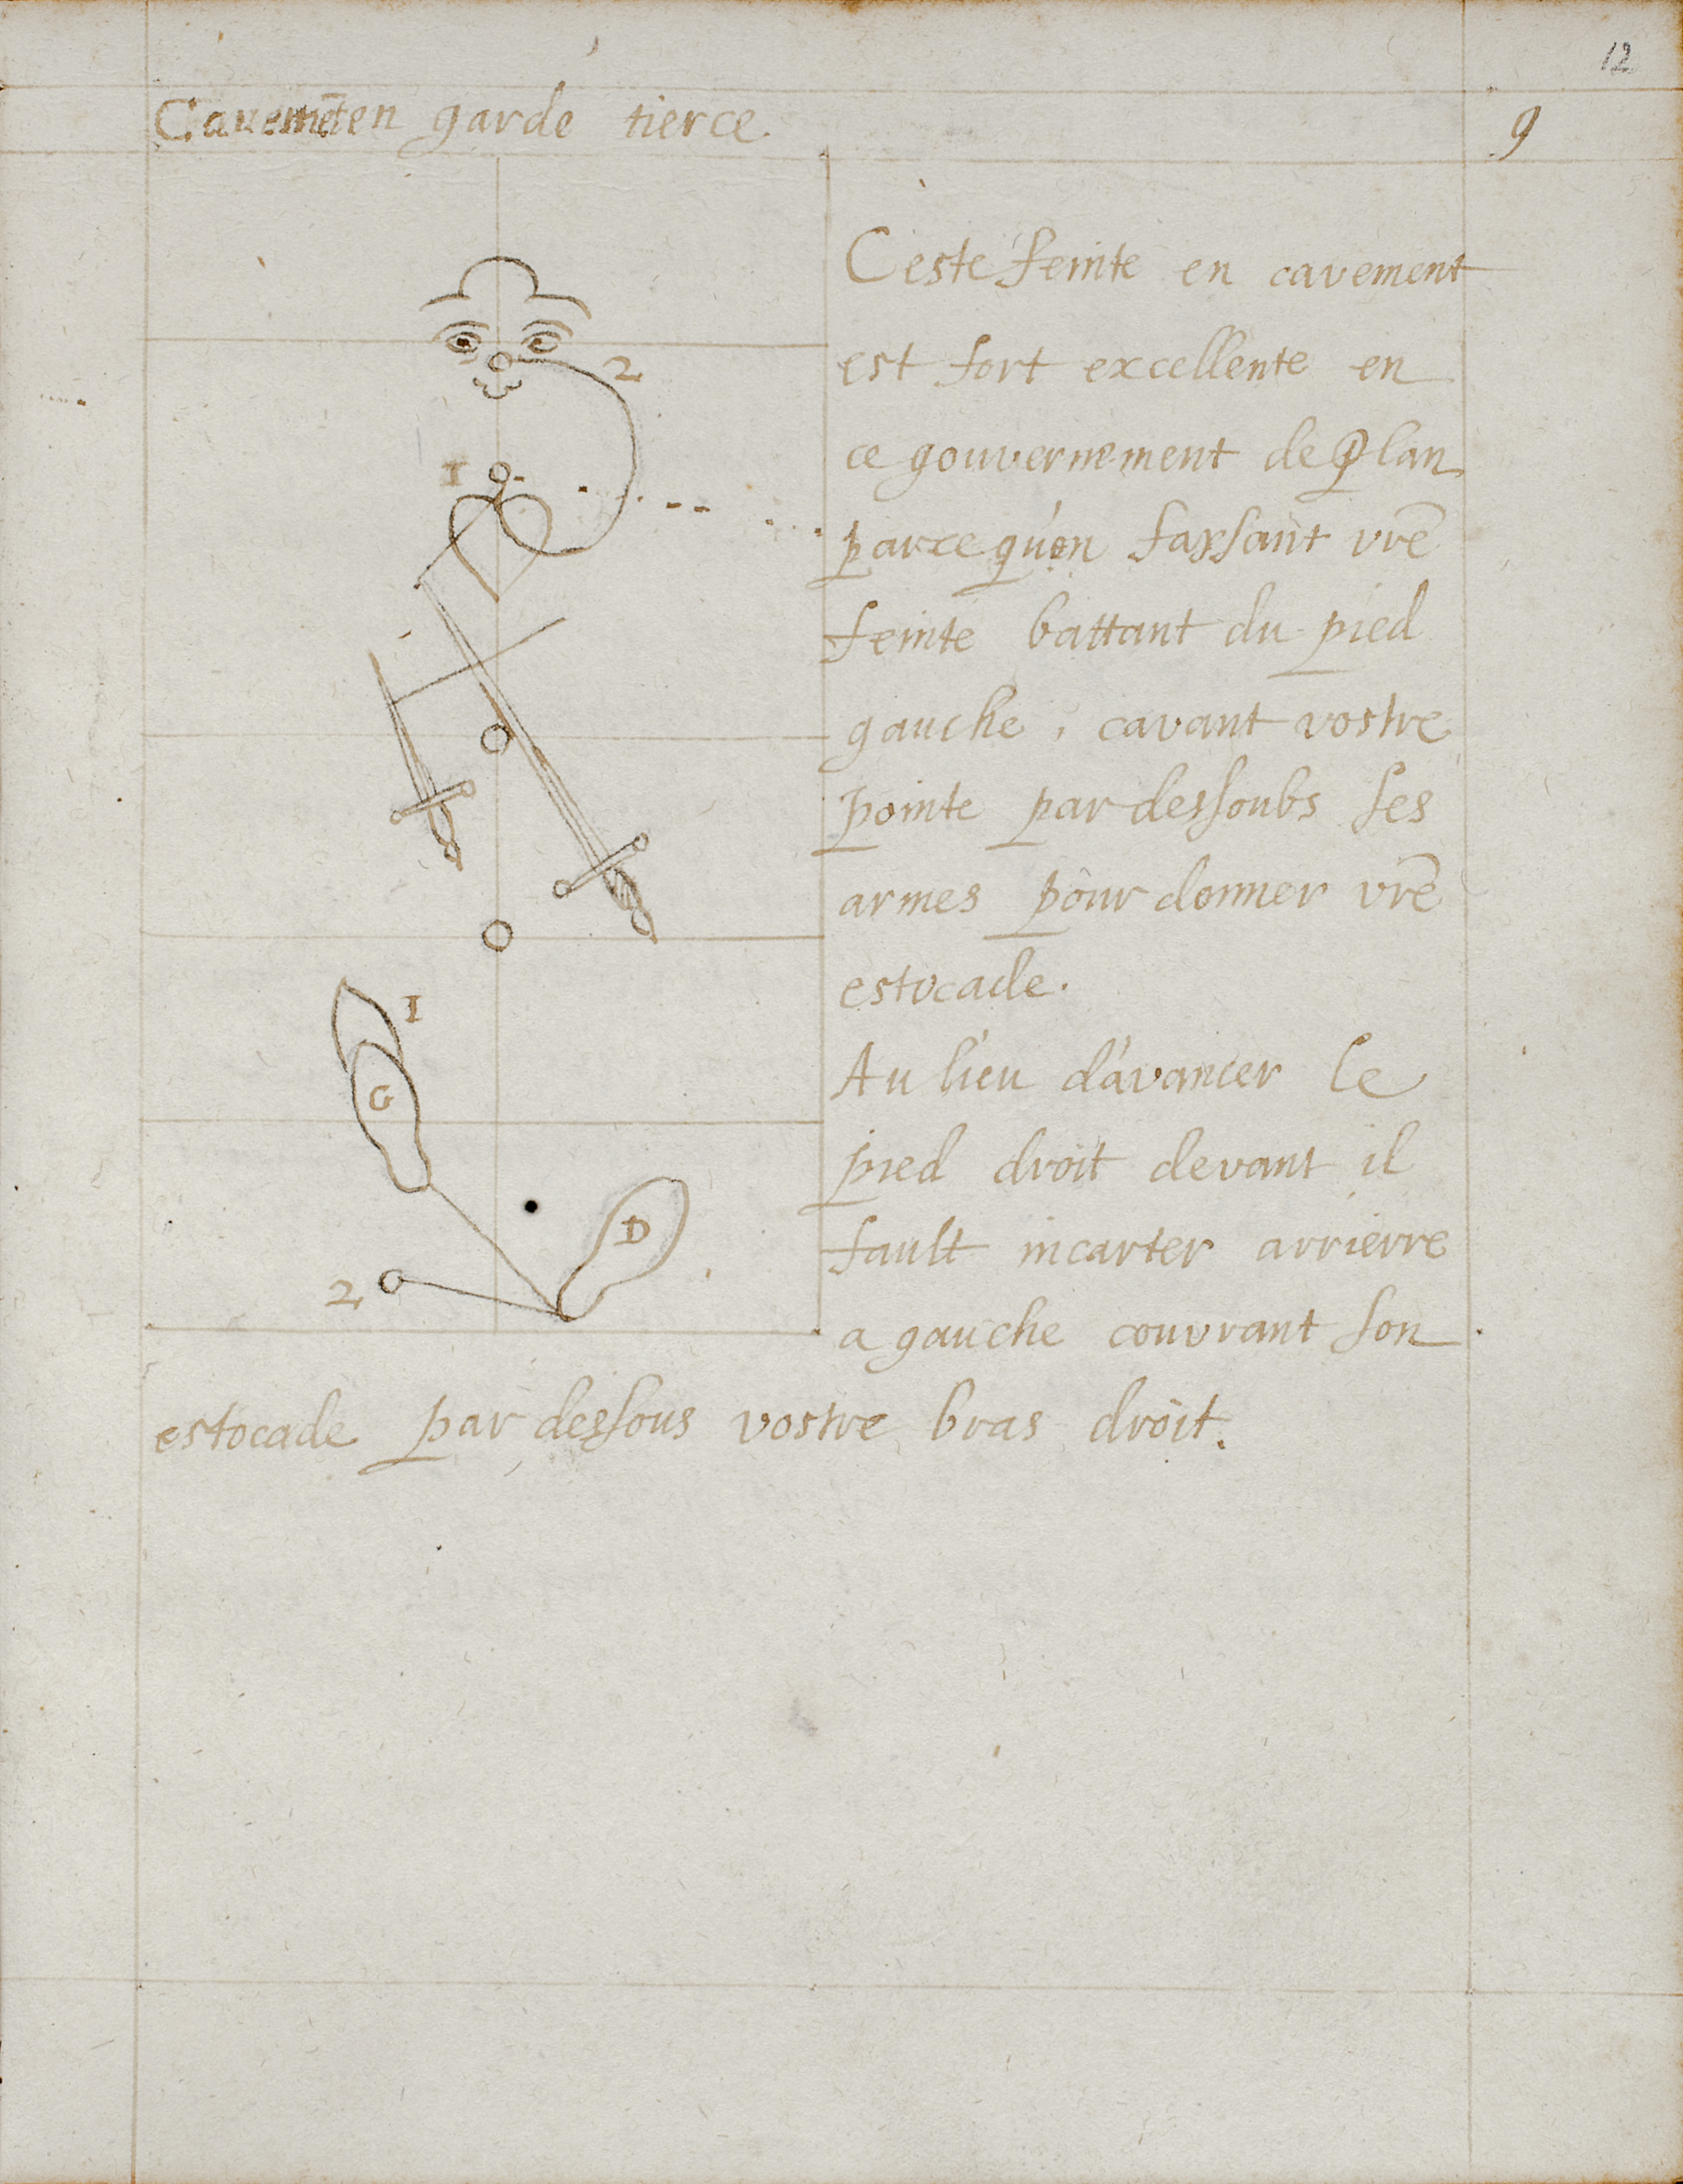 12
Cavemēt en garde tierce
9
Ceste feinte en cavement
est fort excellente en
ce gouvernement de Plan
parce qu'en faysant vr̄e
feinte battant du pied
gauche, cavant vostre
pointe par dessoubs ses
armes pour donner vr̄e
estocade.
Au lieu d'avancer le
pied droit devant il
fault incarter arrierre
a gauche couvrant son
estocade par dessous vostre bras droit.
2
1
1
G
D
2